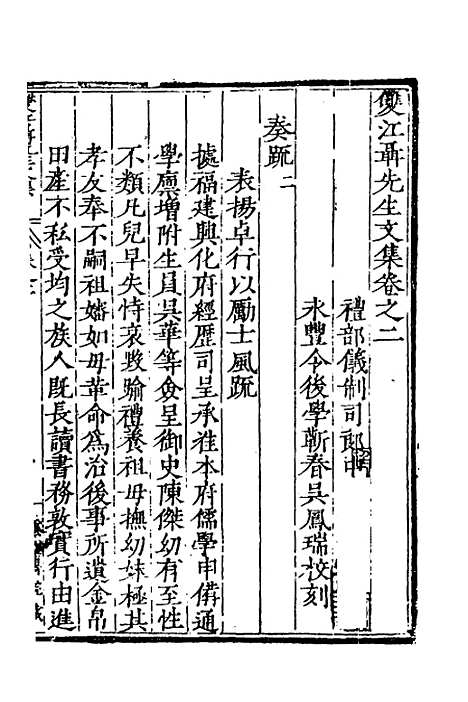 雙江聶先生文集卷之二
禮部儀制司郎中
永豐令後學蘄春吳鳳瑞校刻
奏疏二
表揚卓行以勵士風疏
據福建興化府經歷司呈承准本府儒學申備通
學廩增附生員吳華等僉呈御史陳傑幼有至性
不類凡兒早失恃哀毀踰禮養祖母撫幼妹極其
孝友奉不嗣祖嬸如母革命為治後事所遺金帛
田產不私受均之族人既長讀書務敦實行由進